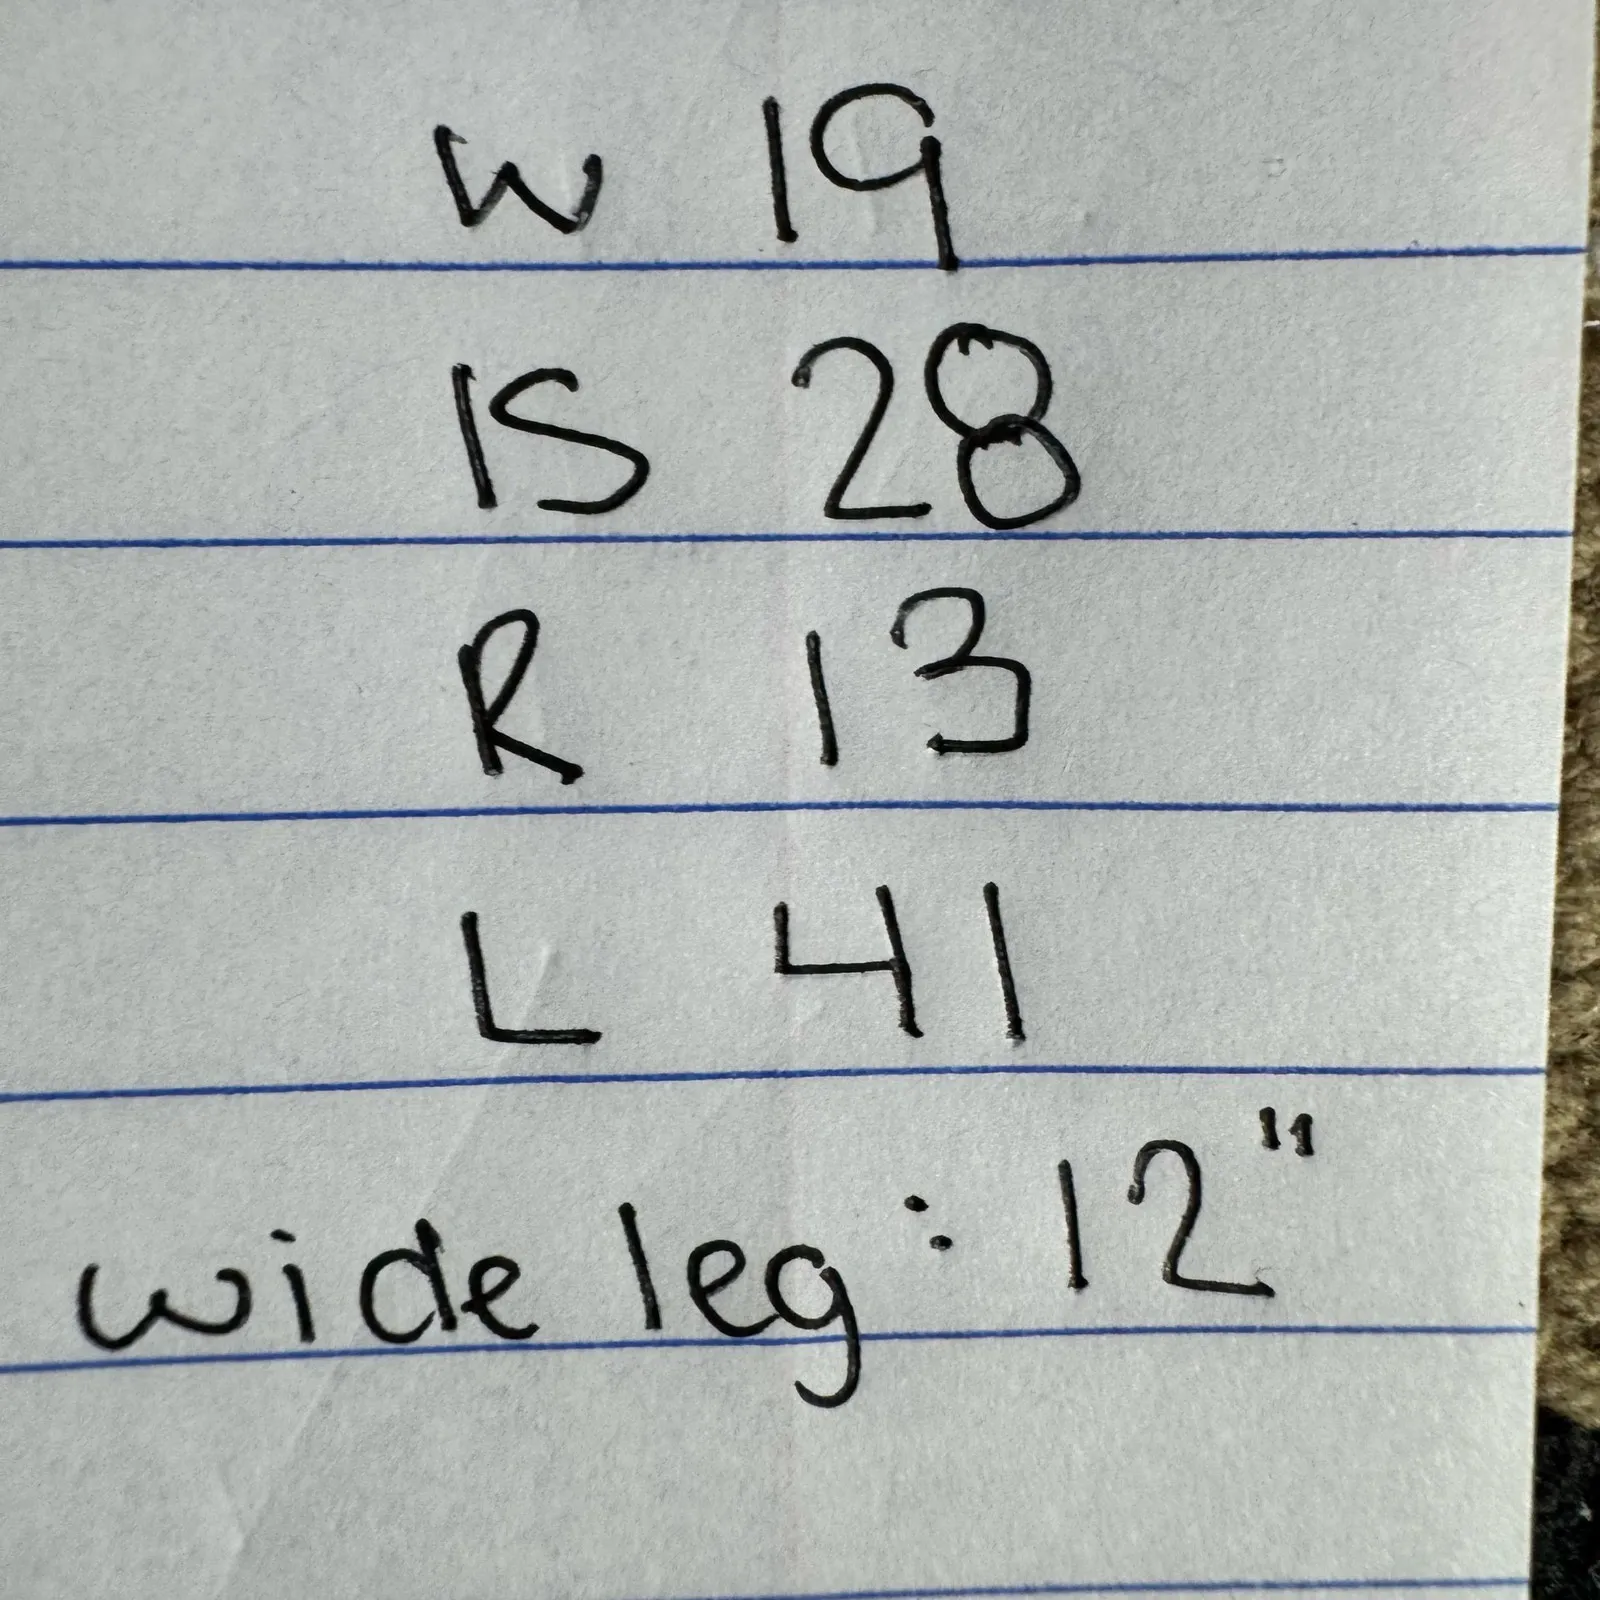 W 19
IS 28
R 13
L 41
wide leg: 12"